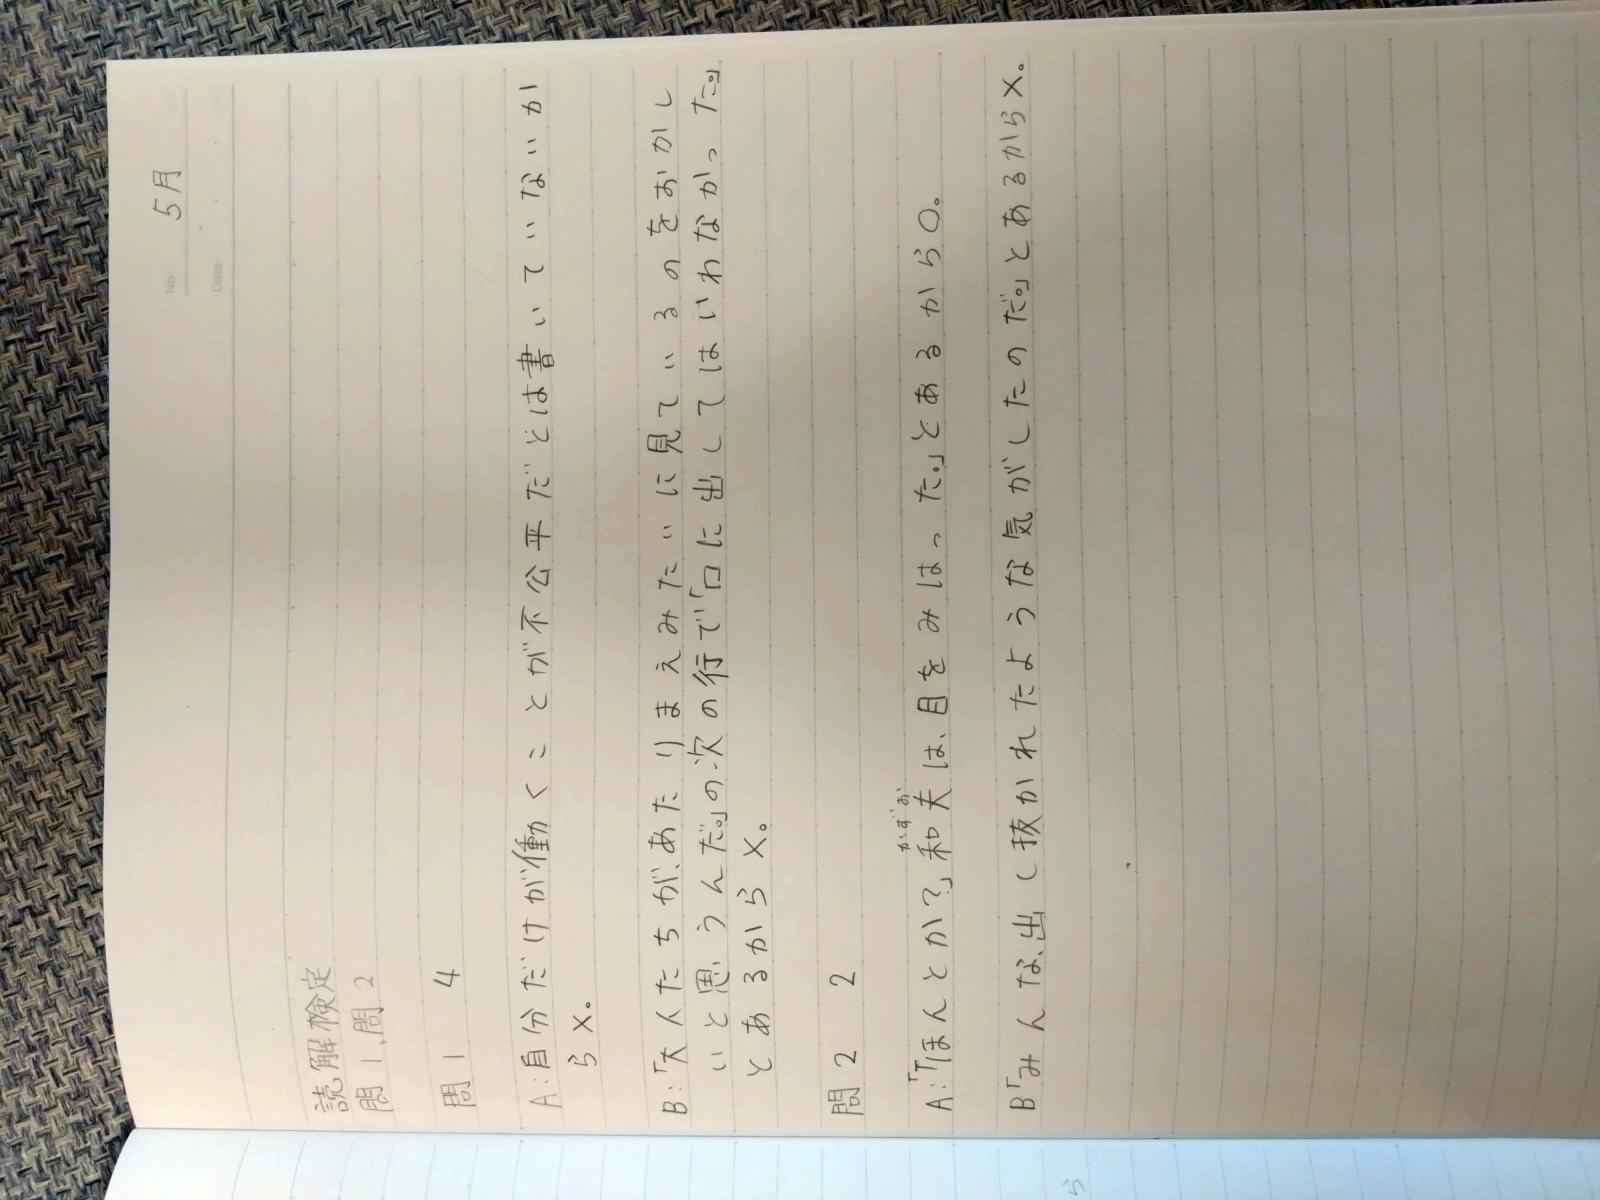 No.
5月
Date
読解検定
問1、問2
問1 4
A:自分だけが働くことが不公平だとは書いていないか
ら×。
B:「大人たちが、あたりまえみたいに見ているのをおかし
いと思うんだ。」の次の行で「口に出してはいわなかった。」
とあるから×。
問2 2
A:「「ほんとか?」和夫は、目をみはった。」とあるから○。
かずお
B「みんな、出し抜かれたような気がしたのだ。」とあるから×。
ら